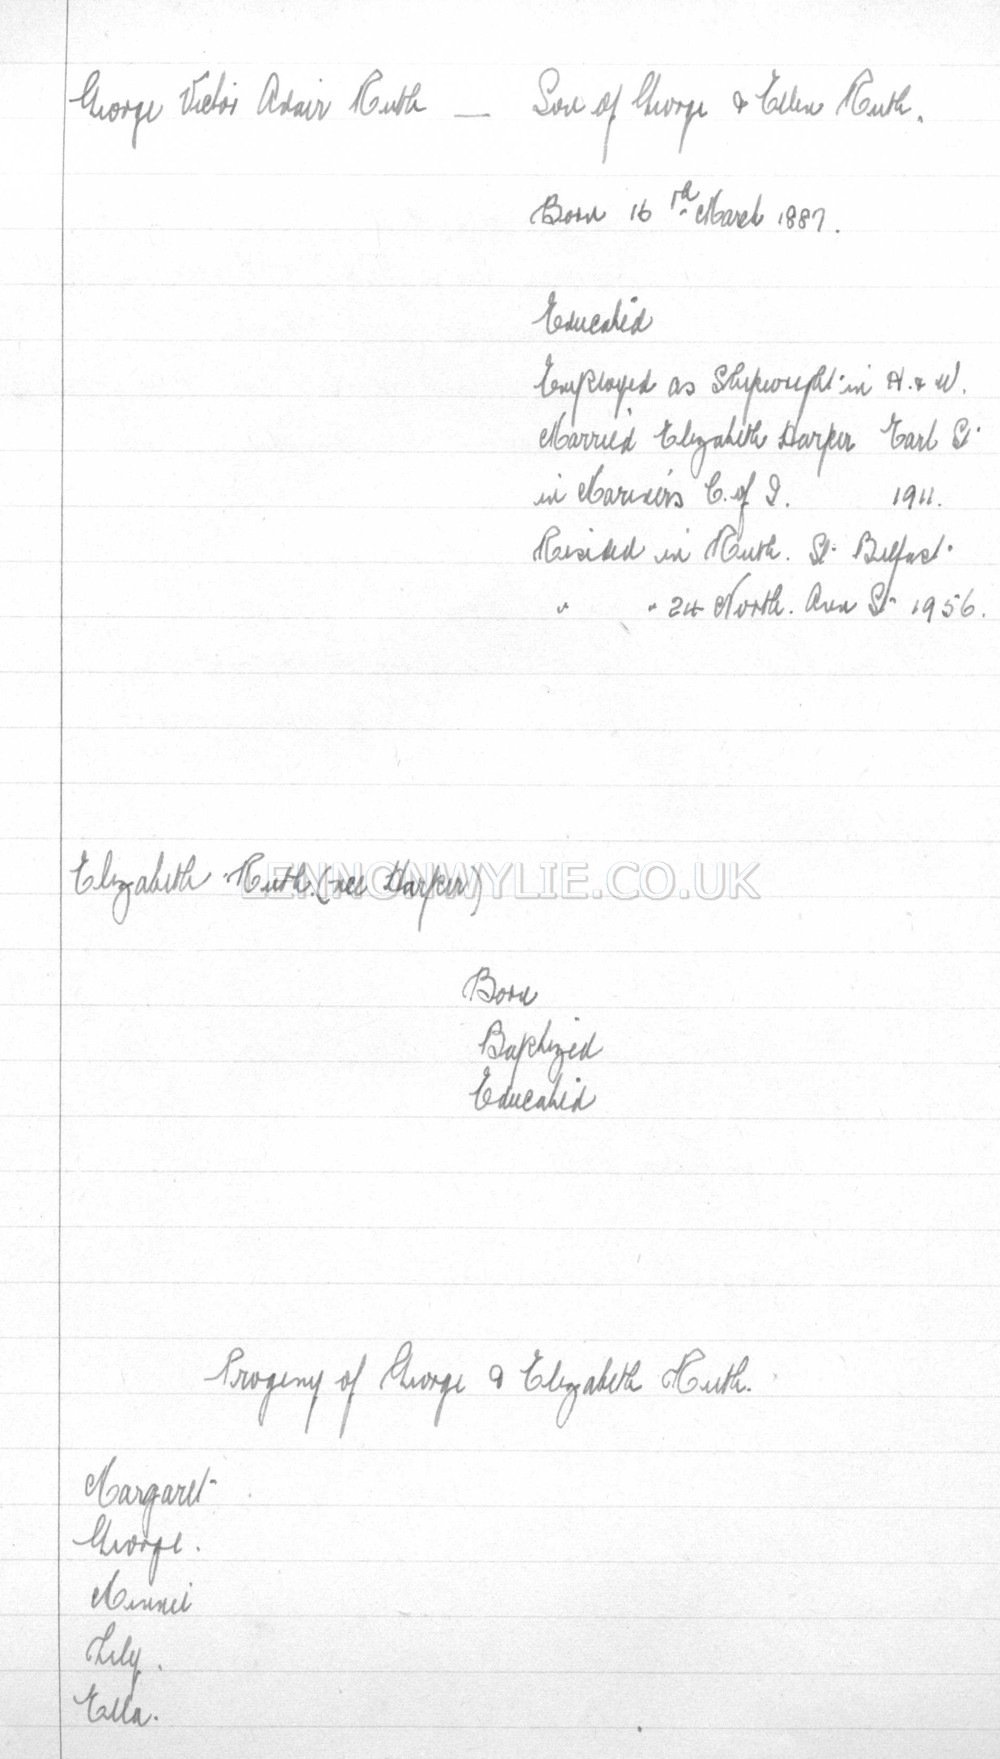 George Victor Adair Ruth — Son of George & Ellen Ruth.
Born 16th March 1887.
Educated
Employed as Shipwright in H. & W.
Married Elizabeth Harper Earl St
in Mariners C. of I. 1911.
Resided in Ruth. St. Belfast
" " 24 North. Ann St 1956.
Elizabeth Ruth. (nee Harper)
LENNONWYLIE.CO.UK
Born
Baptized
Educated
Progeny of George & Elizabeth Ruth.
Margaret
George.
Minnie
Lily.
Ella.